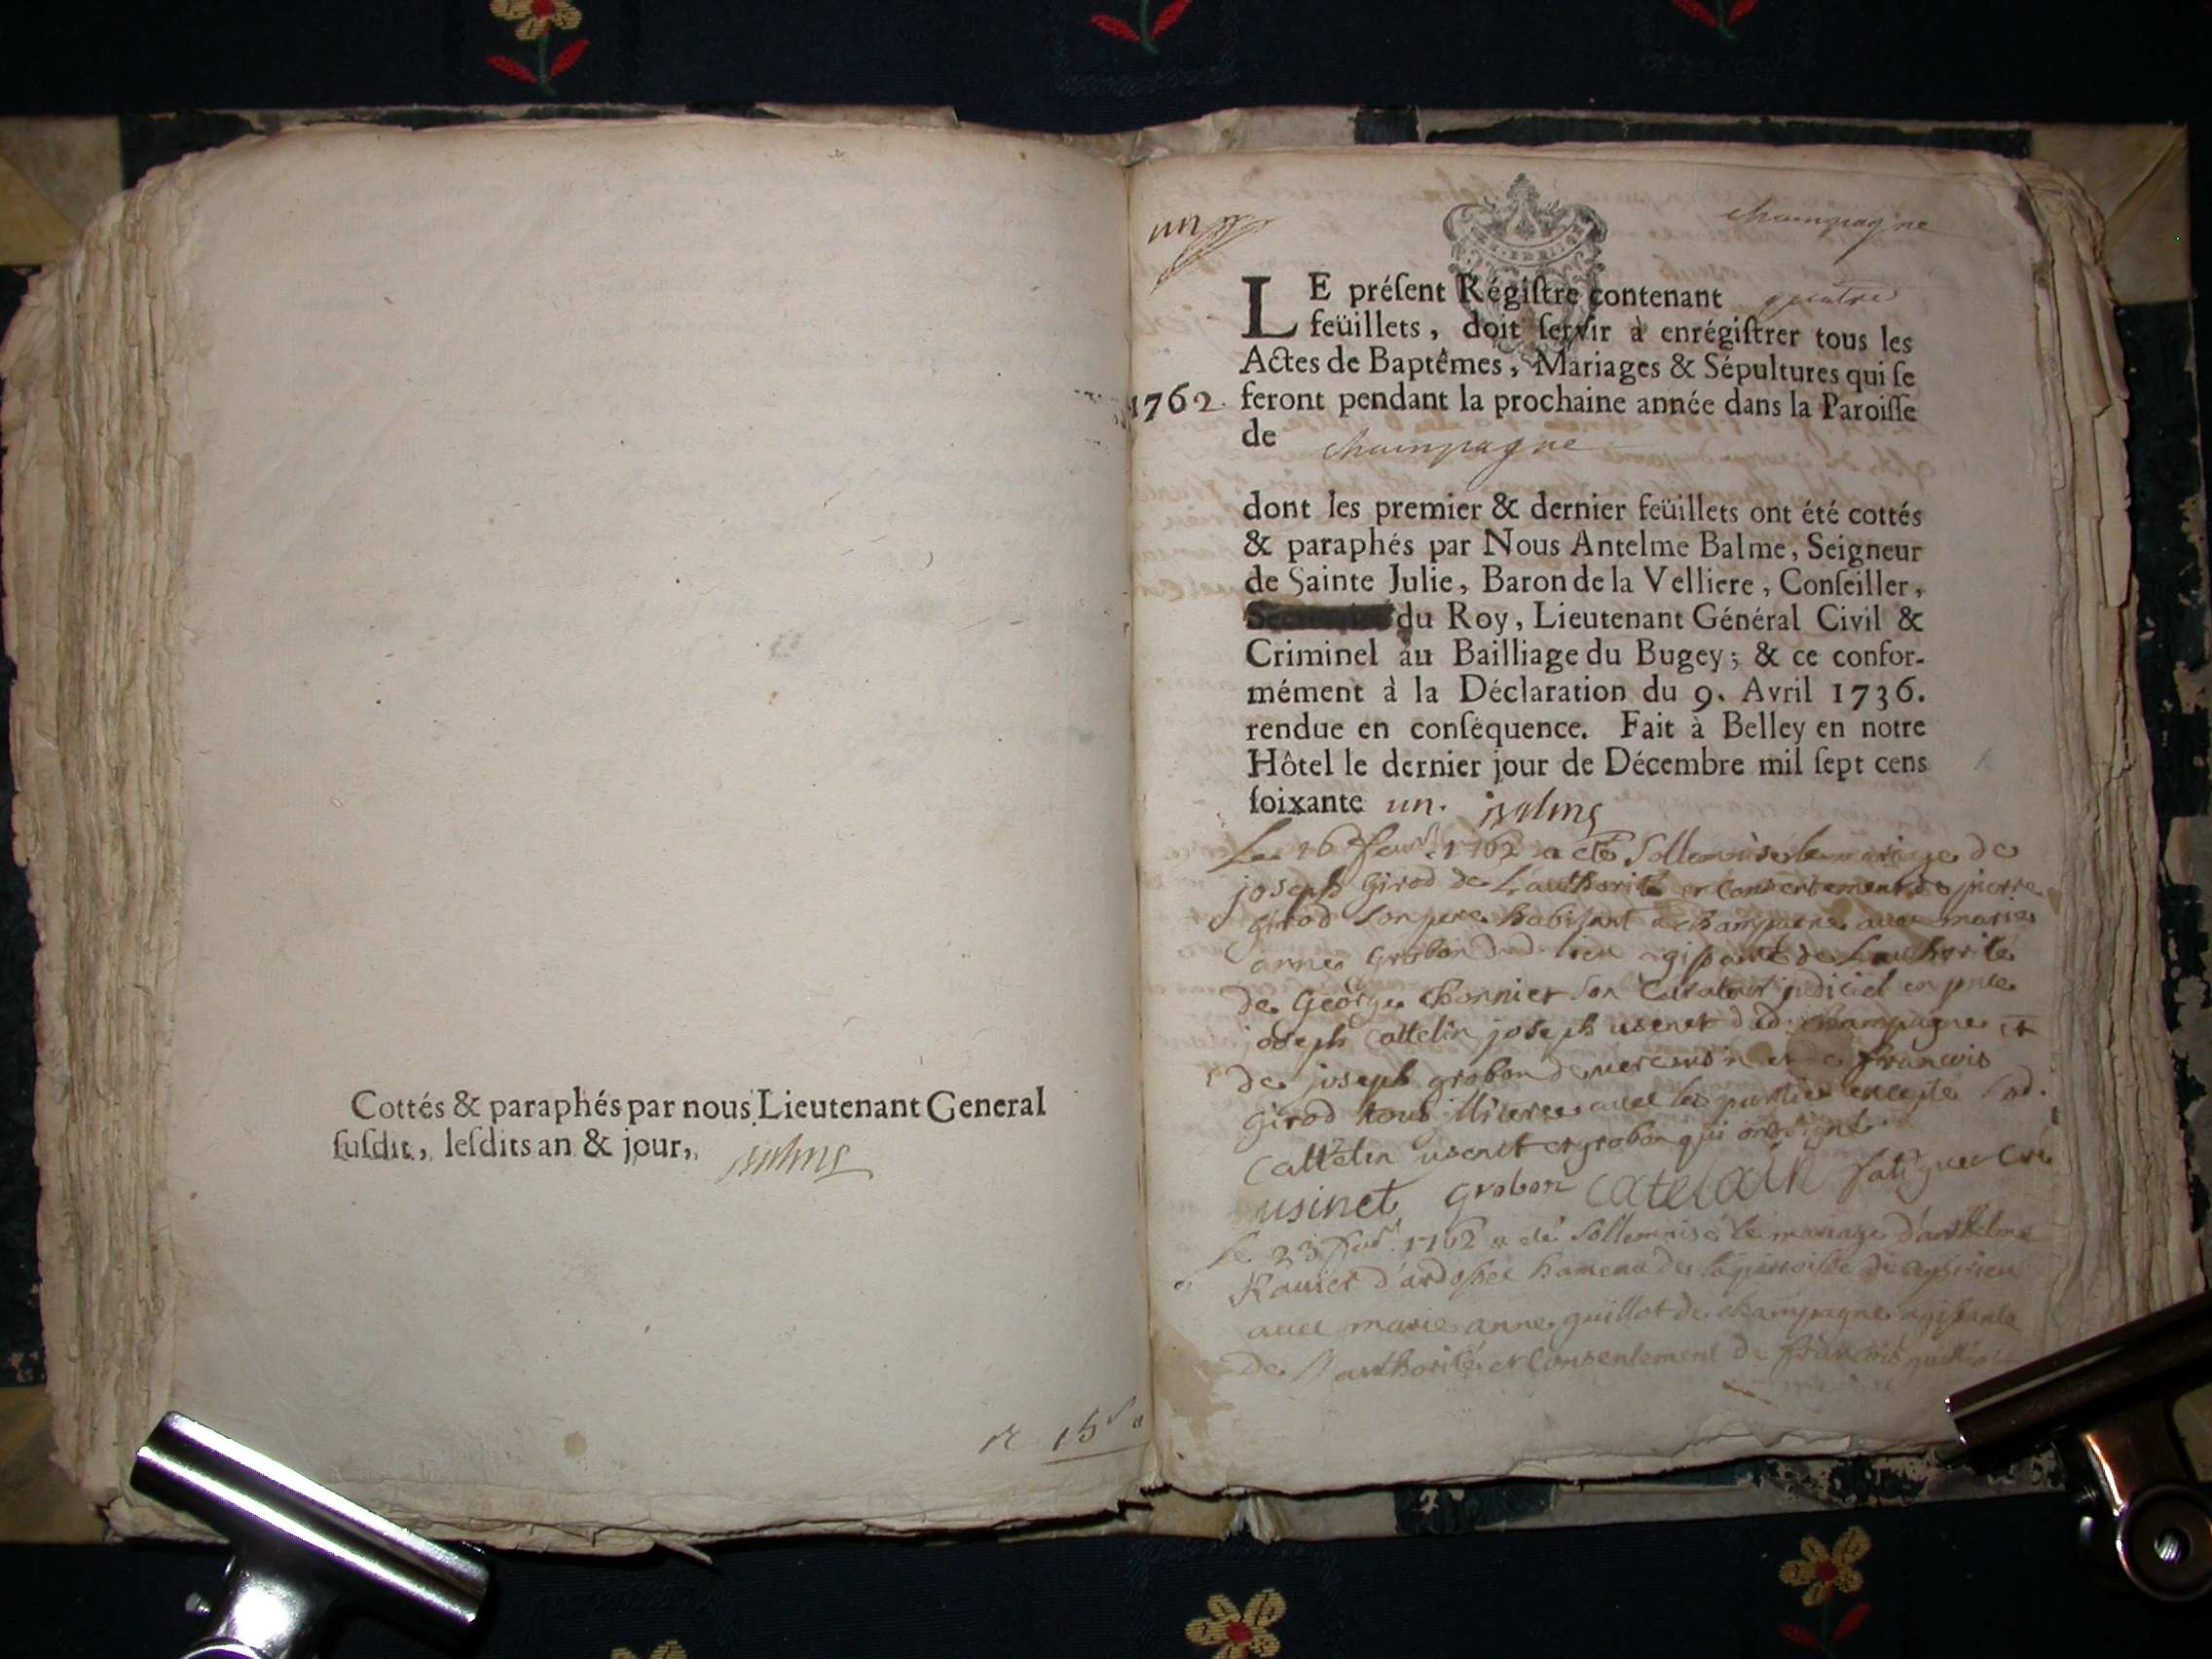 Cottés & paraphés par nous Lieutenant General
ſuſdit, leſdits an & jour,
un
champagne
LE préſent Régiſtre contenant quatre
feüillets, doit ſervir à enrégiſtrer tous les
Actes de Baptêmes, Mariages & Sépultures qui ſe
1762. feront pendant la prochaine année dans la Paroiſſe
de champagne
dont les premier & dernier feüillets ont été cottés
& paraphés par Nous Antelme Balme, Seigneur
de Sainte Julie, Baron de la Velliere, Conſeiller,
du Roy, Lieutenant Général Civil &
Criminel au Bailliage du Bugey; & ce confor-
mément à la Déclaration du 9. Avril 1736.
rendue en conſéquence. Fait à Belley en notre
Hôtel le dernier jour de Décembre mil ſept cens
ſoixante un. balme
Le 16 feur 1762 a eté Sollemnisé le mariage de
joseph Girod de L'authorité et Consentement de pierre
girod Son pere habitant a champagne avec marie
anne Grobon dud. lieu agissante de Lauthorité
de George Bonnier Son Curateur judiciel en pnce
joseph Cattelin joseph usenet dud. champagne et
de joseph grobon de et de francois
Girod tous illiterés avec les parties excepté Led.
Cattelin usenet et grobon qui ont signé
usinet grobon catelain
Le 23 feur. 1762 a eté Sollemnisé le mariage d'anthelme
d'ardosset hameau de la paroisse de
avec marie anne guillot de champagne agissante
De l'authorité et Consentement de françois guillot